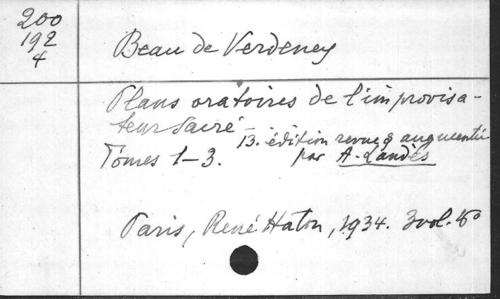 200
192
4
Beau de Verdeney
Plans oratoires de l'improvisa-
teur sacré – 13. édition revue & augmentée
Tomes 1–3. par A. Landès
Paris, René Haton, 1934. 3 vol. 8°